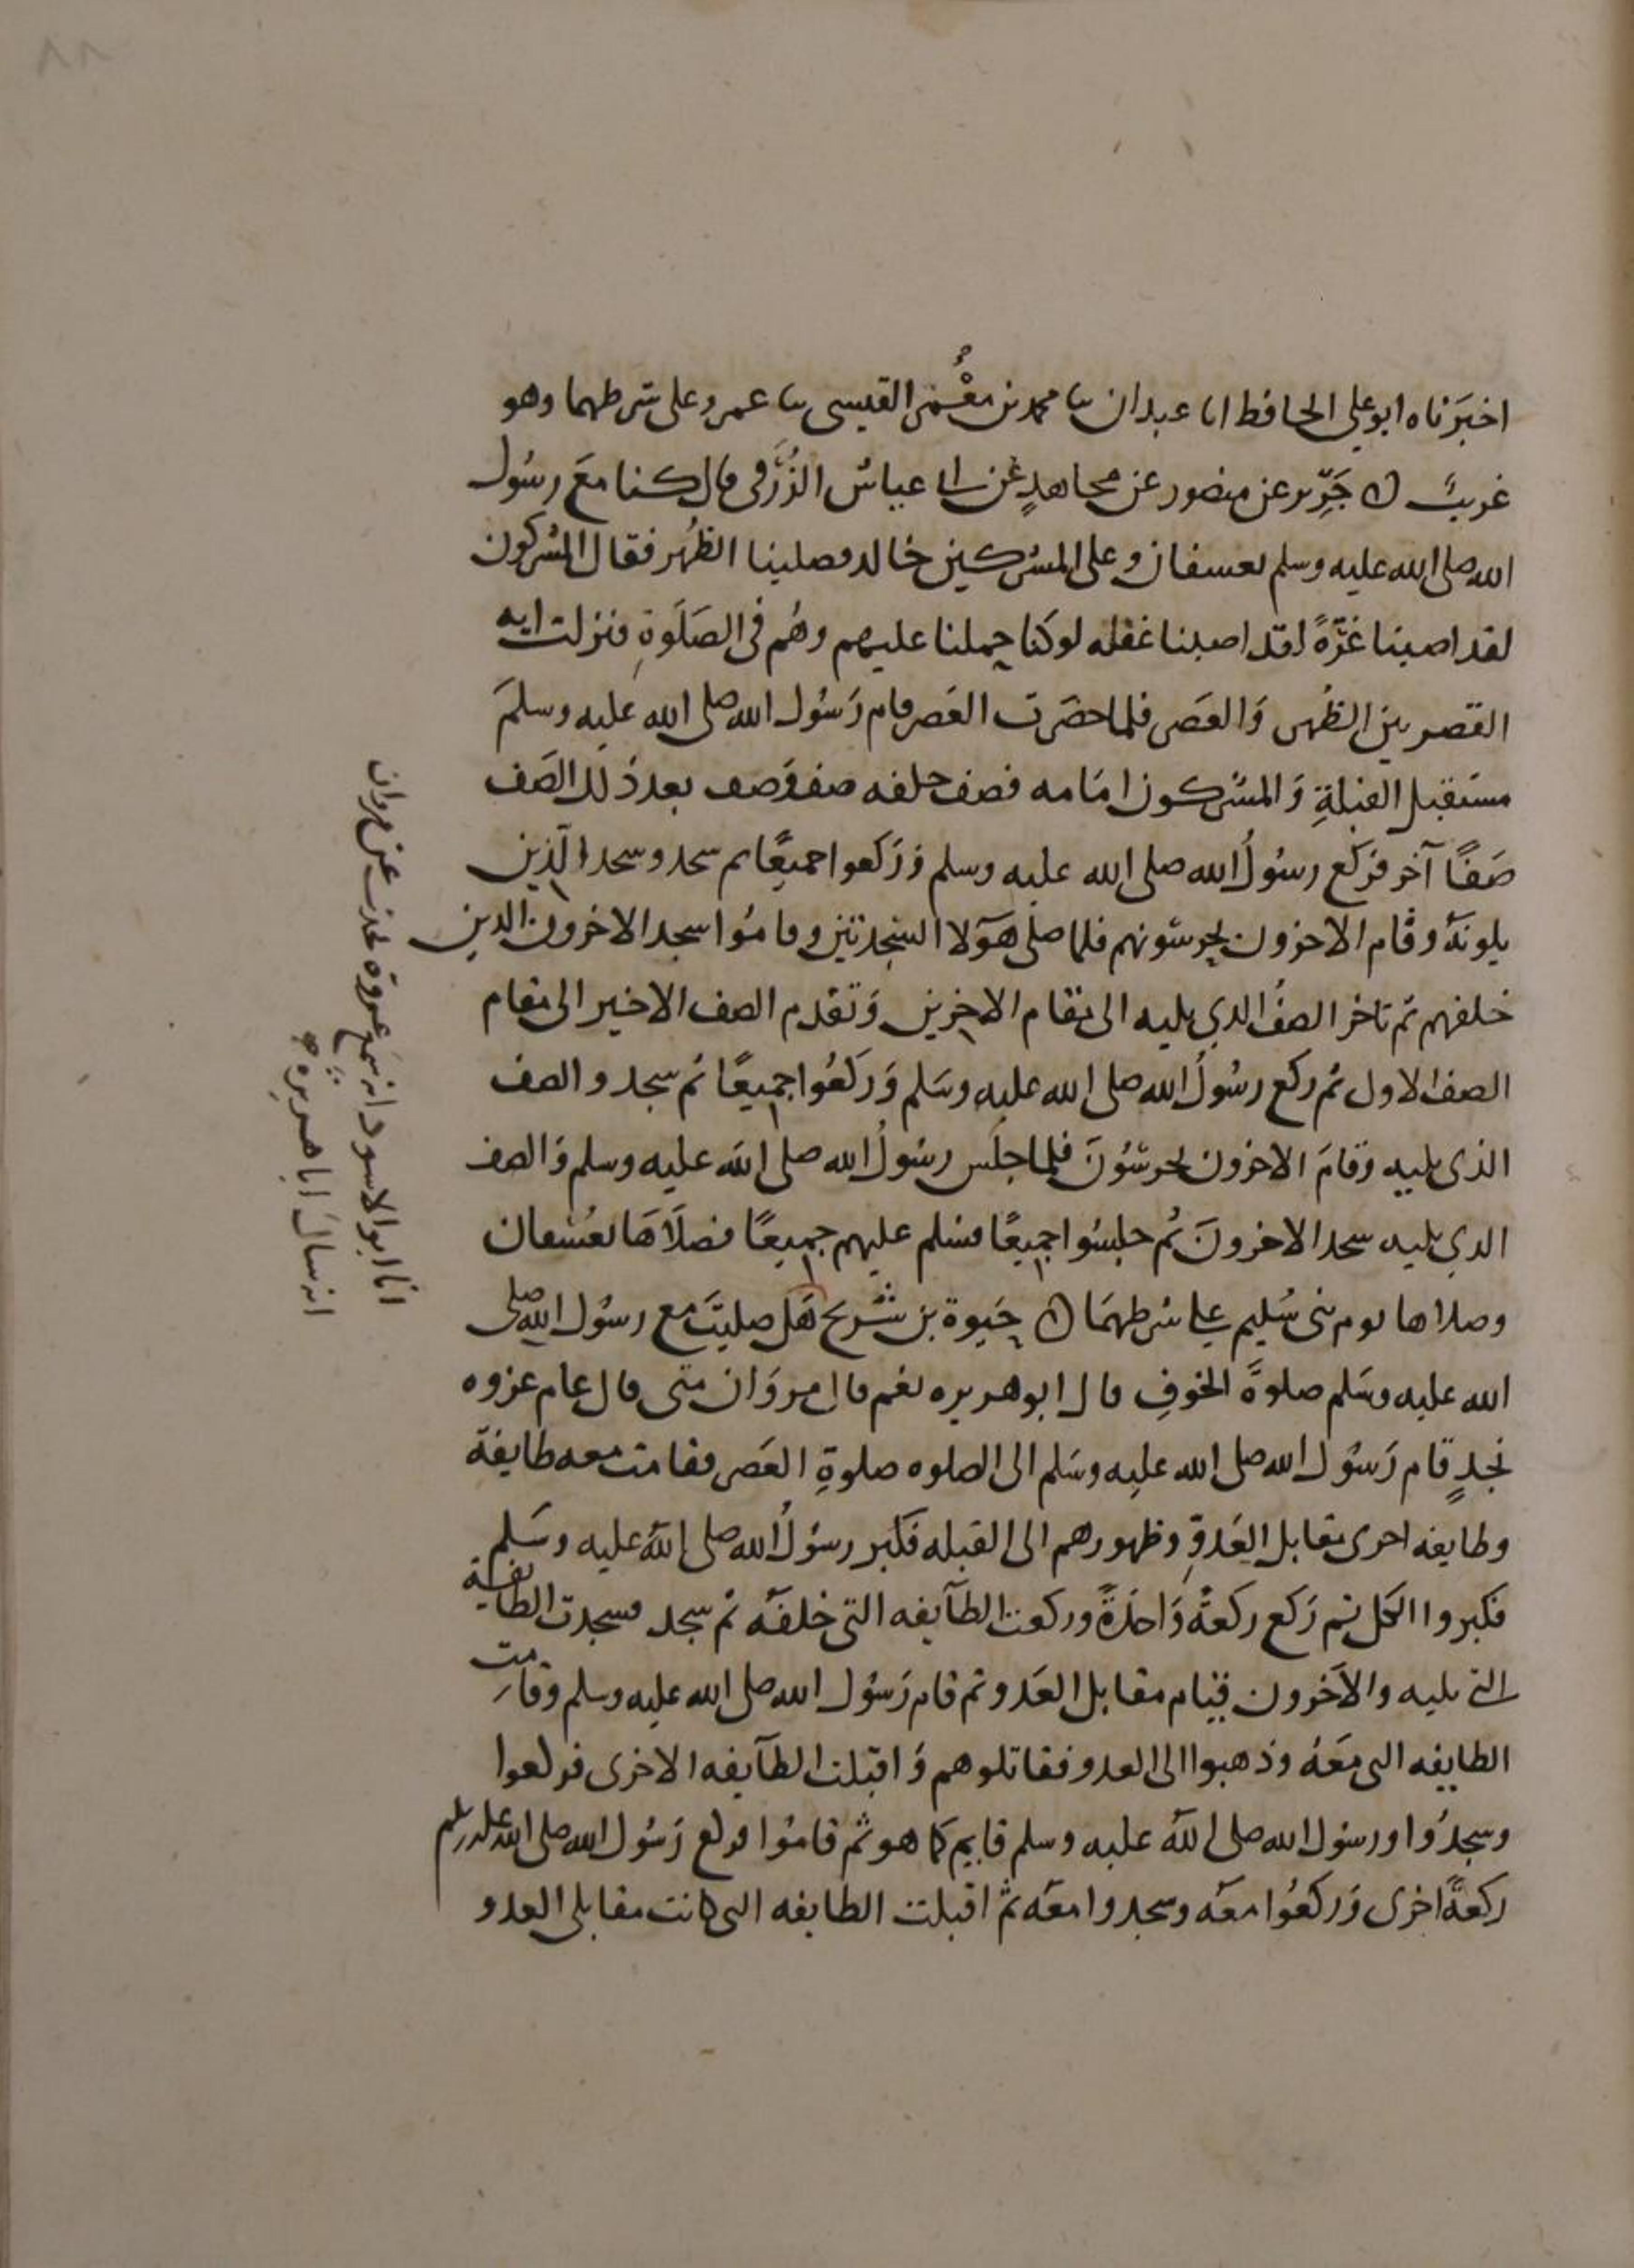 ٨٨
اخبَرَناه ابو علي الحافظ انا عبدان نا محمد بن مَعْمَر القيسي نا عمرو على شرطهما وهو
غريبٌ ○ جَرِير عن منصور عن مجاهدٍ عن ابي عياش الزُّرَقي قال كنا معَ رسُول
الله صلى الله عليه وسلم بعسفان وعلى المشركين خالد فصلينا الظُهر فقال المشركون
لقد اصبنا غرَّةً لقد اصبنا غفله لو كنا حملنا عليهم وهُم في الصَلَوةِ فنزلت ايه
القصر بين الظُهر وَالعَصر فلما حضَرت العَصر قام رَسُول الله صلى الله عليه وسلمَ
مستَقبل القبلةِ وَالمشركون امَامه فصف خلفه صف وَصف بعد ذَلك الصَف
صَفًا آخر فرَكع رسُولُ الله صلى الله عليه وسلم وَرَكعوا جميعًا ثم سجد وسجد الّذين
يلونَهُ وقام الاخرون يحرسُونهم فلما صلى هَوَلا السَجدتين وقامُوا سجد الاخرون الذين
خلفهم ثم تاخر الصفُ الذي يليه الى مقام الاخرين وَتقدم الصف الاخير الى مقام
الصف الاول ثم ركع رسُولُ الله صلى الله عليه وسَلم وَرَكعُوا جميعًا ثم سجد والصف
الذي يليه وقامَ الاخرون يحرسُونَ فلما جلَس رسُولُ الله صلى الله عليه وسلم وَالصف
الذي يليه سجد الاخرونَ ثم جلسُوا جميعًا فسلم عليهم جميعًا فصَلاهَا بعُسفان
وصلاها يوم بني سُليم على شرطهمَا ○ حَيوة بن شُريح هَل صليتَ مع رسُول الله صلى
الله عليه وسَلم صلوةَ الخوفِ قال ابو هريره نعم قال مروَان متى قال عام غزوه
نجدٍ قام رَسُول الله صلى الله عليه وسَلم الى الصلوه صلوةِ العَصر فقامت معه طايفة
وطايفه اخرى مقابل العَدوِّ وظهورهم الى القبله فكبر رسُولُ الله صلى اللهُ عليه وسَلم
فكبروا الكل ثم رَكع ركعةً وَاحدَةً وركعت الطآيفه التي خلفَه ثم سجد فسجدت الطايفة
التي يليه والآخرون قيام مقابل العَدو ثم قام رَسُول الله صلى الله عليه وسلم وقامت
الطايفه التي معَهُ وذهبوا الى العدو فقاتلوهم وَاقبلت الطآيفه الاخرى فركعوا
وسجدُوا ورسُول الله صلى اللهُ عليه وسلم قايم كما هو ثم قامُوا فركع رَسُول الله صلى الله عليه وسلم
ركعةً اخرى وَركعُوا معَه وسجدوا معَه ثم اقبلت الطايفه التي كانت مقابل العدو
انا ابو الاسود انه سَمع عروة يحدث عن مروان
انه سالَ ابا هريره